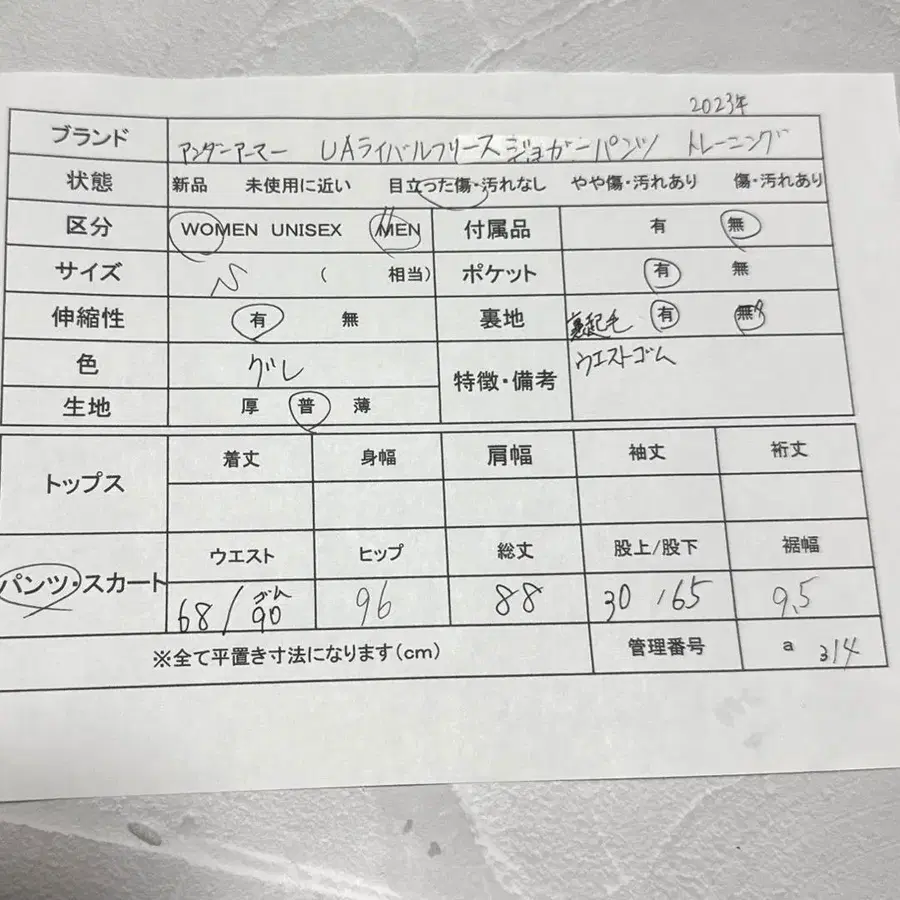 2023年
ブランド アンダーアーマー UAライバルフリースジョガーパンツ トレーニング
状態 新品 未使用に近い 目立った傷・汚れなし やや傷・汚れあり 傷・汚れあり
区分 WOMEN UNISEX MEN 付属品 有 無
サイズ S ( 相当) ポケット 有 無
伸縮性 有 無 裏地 裏起毛 有 無
色 グレ 特徴・備考 ウエストゴム
生地 厚 普 薄
トップス 着丈 身幅 肩幅 袖丈 裄丈
パンツ・スカート ウエスト ヒップ 総丈 股上/股下 裾幅
68/ゴム90 96 88 30 /65 9.5
※全て平置き寸法になります(cm) 管理番号 a 314